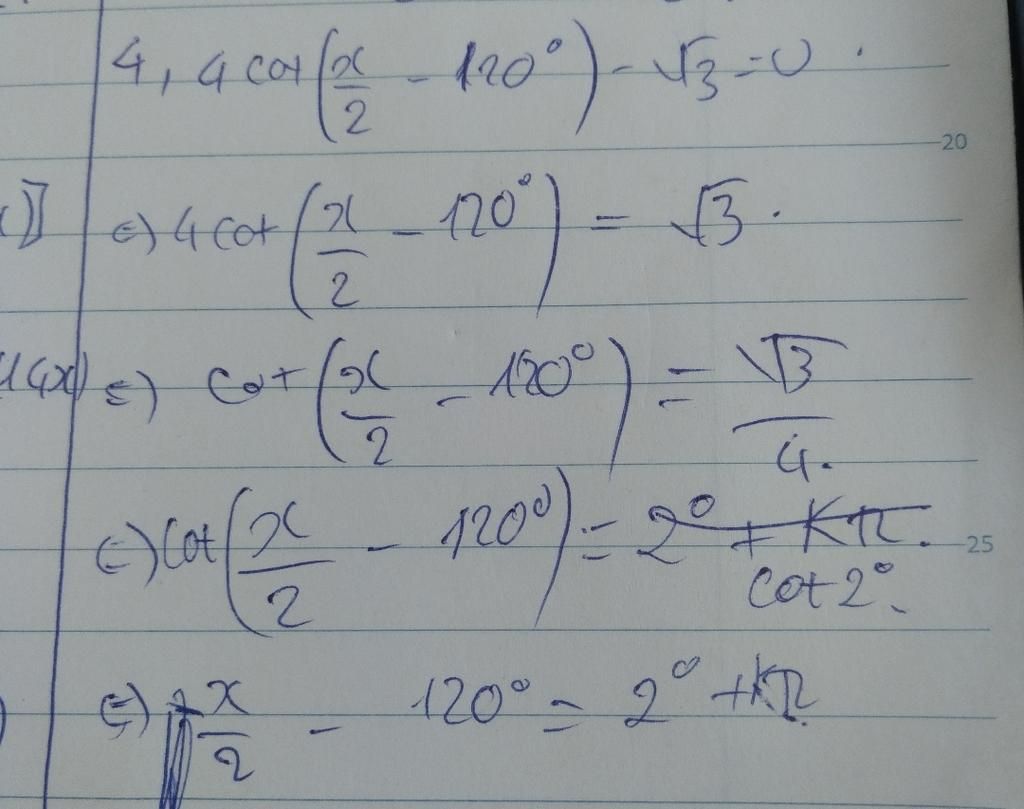 4, 4 cot (x/2 - 120°) - √3 = 0.
20
)] ⇔ 4 cot (x/2 - 120°) = √3.
4x) ⇔ cot (x/2 - 120°) = √3/4.
⇔ cot (x/2 - 120°) = 2° + kπ. 25
cot 2°.
⇔ x/2 - 120° = 2° + kπ